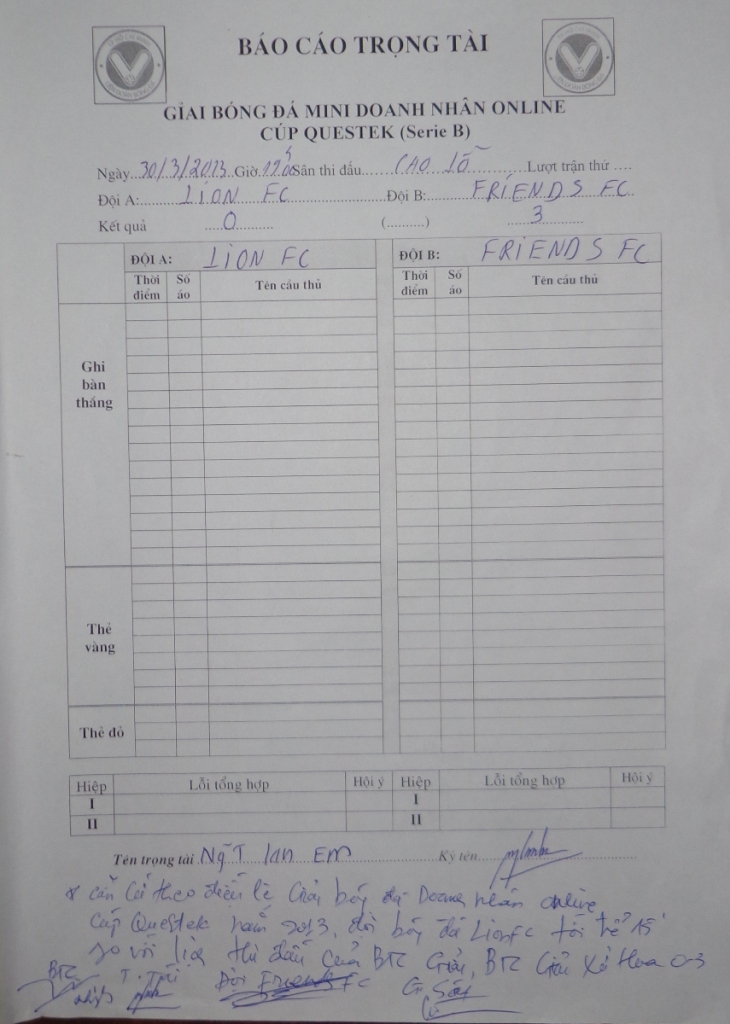 BÁO CÁO TRỌNG TÀI
GIẢI BÓNG ĐÁ MINI DOANH NHÂN ONLINE
CÚP QUESTEK (Serie B)
Ngày...30/3/2013.Giờ.......Sân thi đấu......CAO LỖ............Lượt trận thứ ....
Đội A:........LION FC................Đội B:........FRIENDS FC.
Kết quả ....0.......... (..........) ....3..........
ĐỘI A: LION FC ĐỘI B: FRIENDS FC
Thời điểm Số áo Tên cầu thủ Thời điểm Số áo Tên cầu thủ
Ghi bàn thắng
Thẻ vàng
Thẻ đỏ
Hiệp Lỗi tổng hợp Hội ý Hiệp Lỗi tổng hợp Hội ý
I I
II II
Tên trọng tài Em Ký tên
căn cứ theo điều lệ Giải bóng đá Doanh nhân online
Cúp Questek năm 2013, đội bóng đá Lion FC tới trễ 15'
so với lịch thi đấu của BTC Giải, BTC Giải Xử thua 0-3
BTC T. Đội Friends FC G. Sát